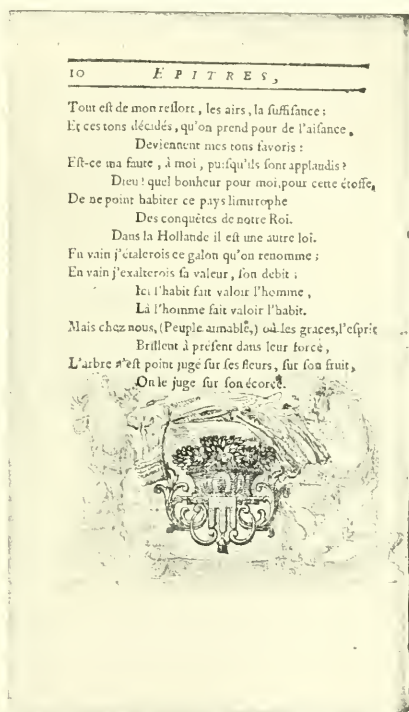 10 EPITRES,
Tout eſt de mon reſſort, les airs, la ſuffiſance ;
Et ces tons décidés, qu'on prend pour de l'aiſance,
Deviennent mes tons favoris :
Eſt-ce ma faute, à moi, puiſqu'ils ſont applaudis ?
Dieu ! quel bonheur pour moi, pour cette étoffe,
De ne point habiter ce pays limitrophe
Des conquêtes de notre Roi.
Dans la Hollande il eſt une autre loi.
En vain j'étalerois ce galon qu'on renomme ;
En vain j'exalterois ſa valeur, ſon débit ;
Ici l'habit fait valoir l'homme,
Là l'homme fait valoir l'habit.
Mais chez nous, (Peuple aimable,) où les graces, l'eſprit
Brillent à préſent dans leur force,
L'arbre n'eſt point jugé ſur ſes fleurs, ſur ſon fruit,
On le juge ſur ſon écorce.